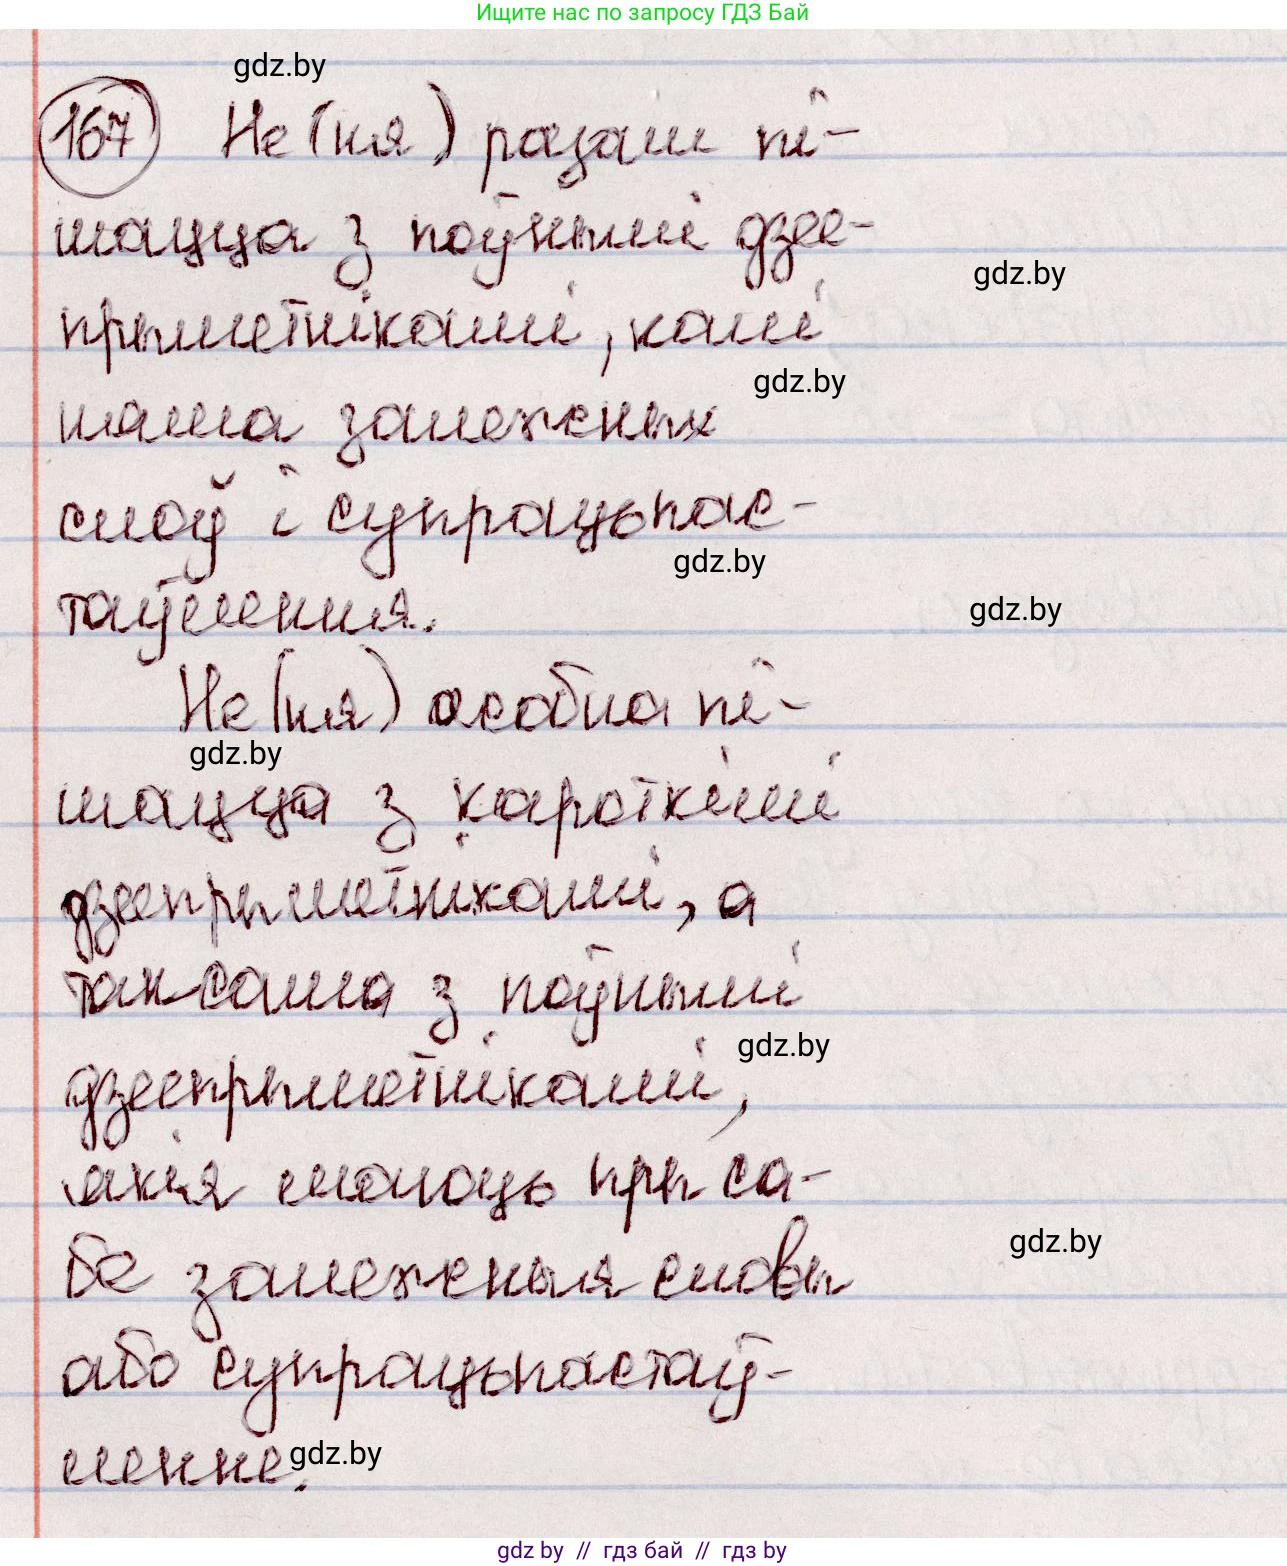 Ищите нас по запросу ГДЗ Бай
gdz.by
167 Не (ня) разам пі-
шацца з поўнымі дзее-
gdz.by
прыметнікамі, калі
gdz.by
няма залежных
слоў і супрацьпас-
gdz.by
таўлення.
gdz.by
Не (ня) асобна пі-
gdz.by
шацца з кароткімі
дзеепрыметнікамі, а
таксама з поўнымі
gdz.by
дзеепрыметнікамі,
якія маюць пры са-
gdz.by
бе залежныя словы
або супрацьпастаў-
ленне.
gdz.by
gdz by // гдз бай // гдз by